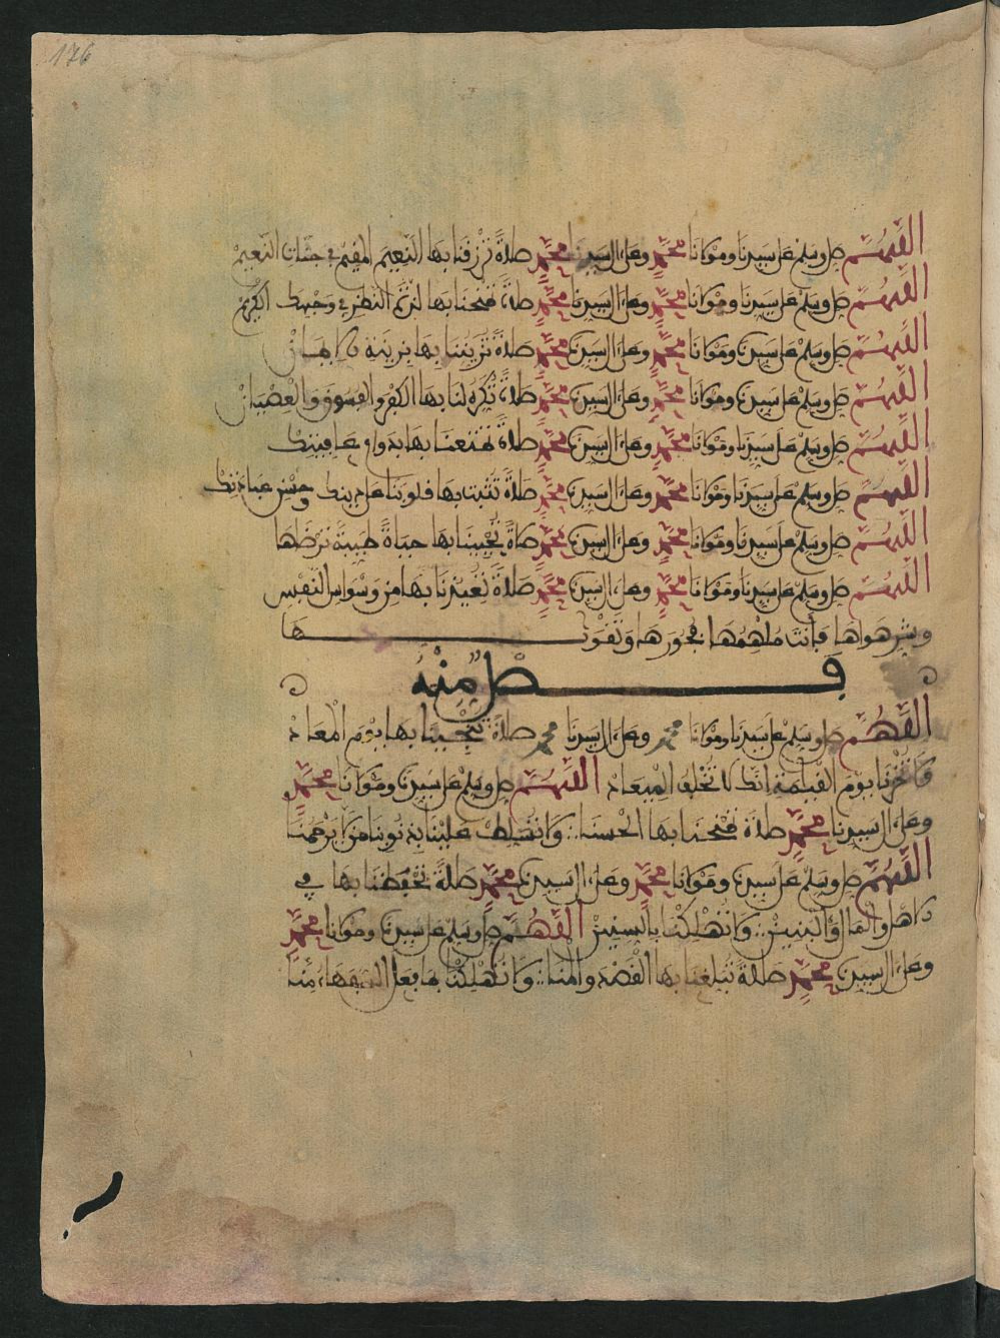 176
اللهم صل وسلم على سيدنا ومولانا محمد وعلى ال سيدنا محمد صلاة ترزقنا بها النعيم المقيم في جنات النعيم
اللهم صل وسلم على سيدنا ومولانا محمد وعلى ال سيدنا محمد صلاة تمنحنا بها لذة النظر في وجهك الكريم
اللهم صل وسلم على سيدنا ومولانا محمد وعلى ال سيدنا محمد صلاة تزيننا بها بزينة الايمان
اللهم صل وسلم على سيدنا ومولانا محمد وعلى ال سيدنا محمد صلاة تكره لنا بها الكفر والفسوق والعصيان
اللهم صل وسلم على سيدنا ومولانا محمد وعلى ال سيدنا محمد صلاة تمتعنا بها بدوام عافيتك
اللهم صل وسلم على سيدنا ومولانا محمد وعلى ال سيدنا محمد صلاة تثبت بها قلوبنا على دينك وحسن عبادتك
اللهم صل وسلم على سيدنا ومولانا محمد وعلى ال سيدنا محمد صلاة تحيينا بها حياة طيبة ترضاها
اللهم صل وسلم على سيدنا ومولانا محمد وعلى ال سيدنا محمد صلاة تعيذنا بها من وسواس النفس
وشر هواها فانت ملهمها فجورها وتقوىها
فصل منه
اللهم صل وسلم على سيدنا ومولانا محمد وعلى ال سيدنا محمد صلاة تنجينا بها يوم المعاد
ولا تخزنا يوم القيامة انك لا تخلف الميعاد اللهم صل وسلم على سيدنا ومولانا محمد
وعلى ال سيدنا محمد صلاة تمنحنا بها الحسنا ولا تسلط علينا بذنوبنا من لا يرحمنا
اللهم صل وسلم على سيدنا ومولانا محمد وعلى ال سيدنا محمد صلاة تحفظنا بها في
الاهل والمال والبنين ولا تهلكنا بالسنين اللهم صل وسلم على سيدنا ومولانا محمد
وعلى ال سيدنا محمد صلاة تبلغنا بها القصد والمنا ولا تهلكنا بما فعل السفهاء منا